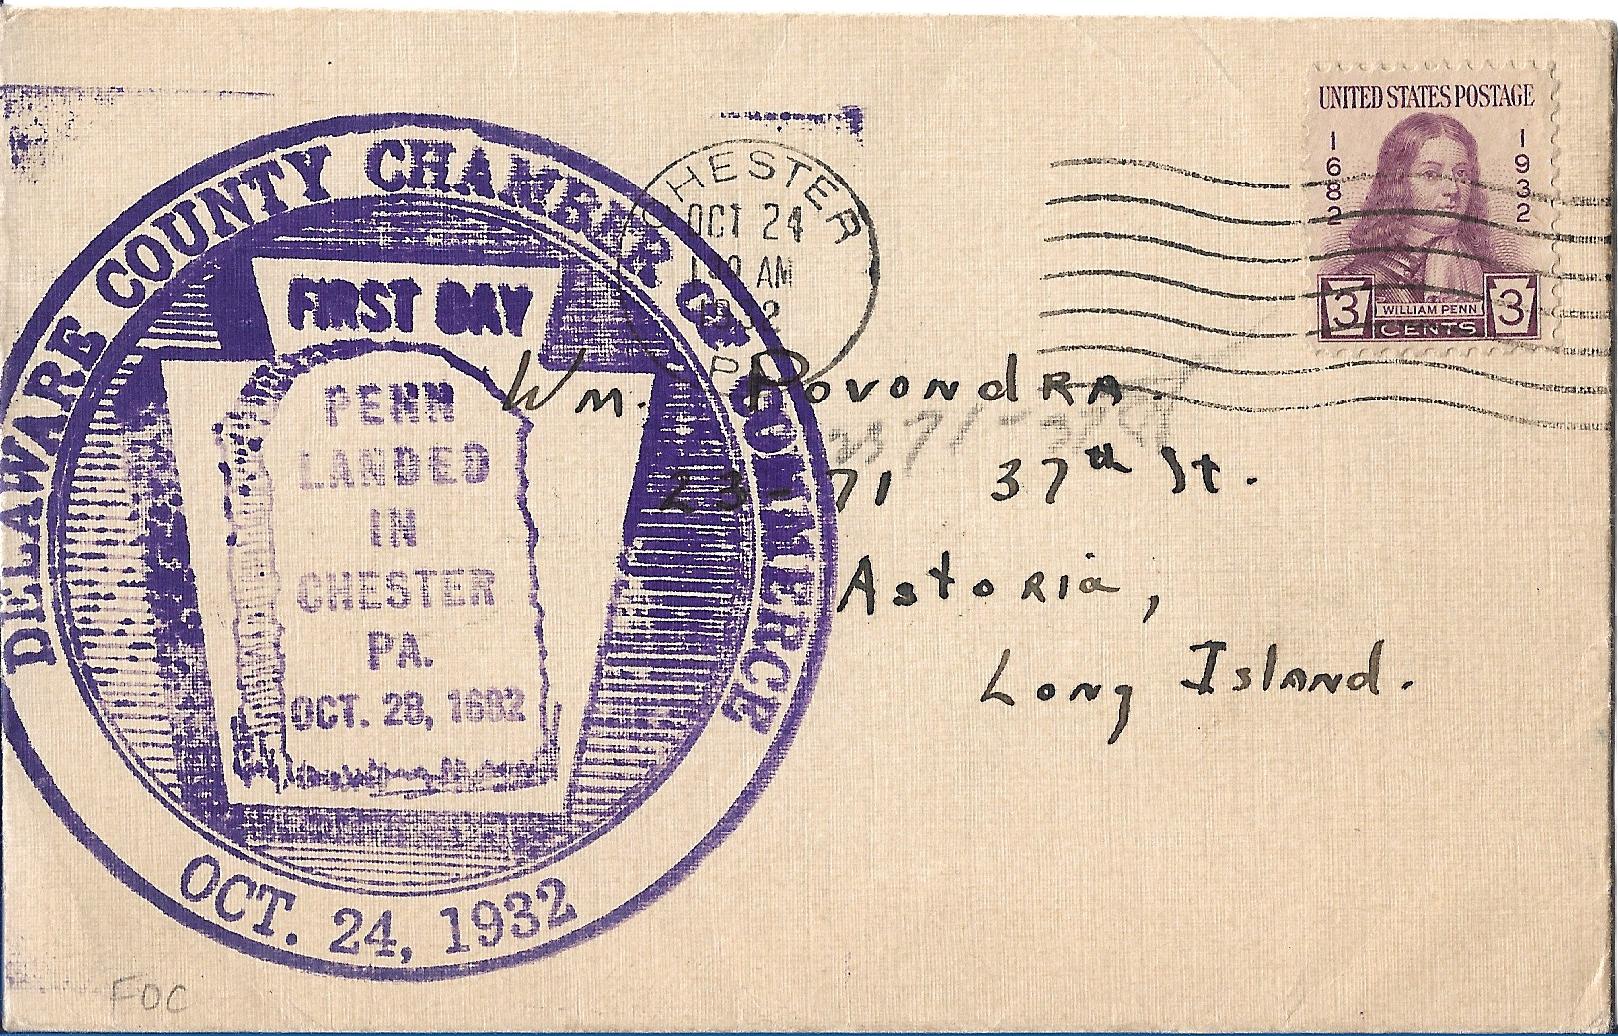 DELAWARE COUNTY CHAMBER OF COMMERCE
FIRST DAY
PENN
LANDED
IN
CHESTER
PA.
OCT. 28, 1682
OCT. 24, 1932
CHESTER
OCT 24
AM
1932
P
UNITED STATES POSTAGE
1682
1932
3 WILLIAM PENN 3
CENTS
Wm. Povondra.
23-71 37th St.
Astoria,
Long Island.
FDC